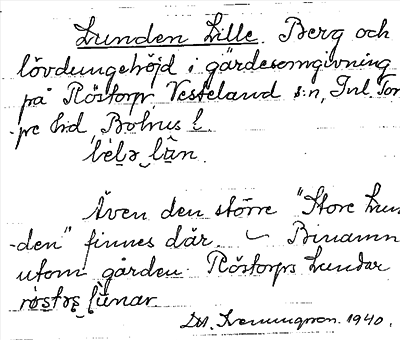 Lunden Lille. Berg och
lövdungehöjd i gärdesomgivning
på Röstorp, Vesteland s:n, Inl. Tor-
-pe hd, Bohus l.
lìlə lûn.
Även den större "Store Lun-
-den" finnes där. – Binamn
utom gården Röstorps Lundar
røstɔs lùnar
1940.